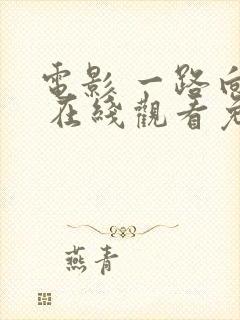 電影 一路向
在綫觀看免
燕青